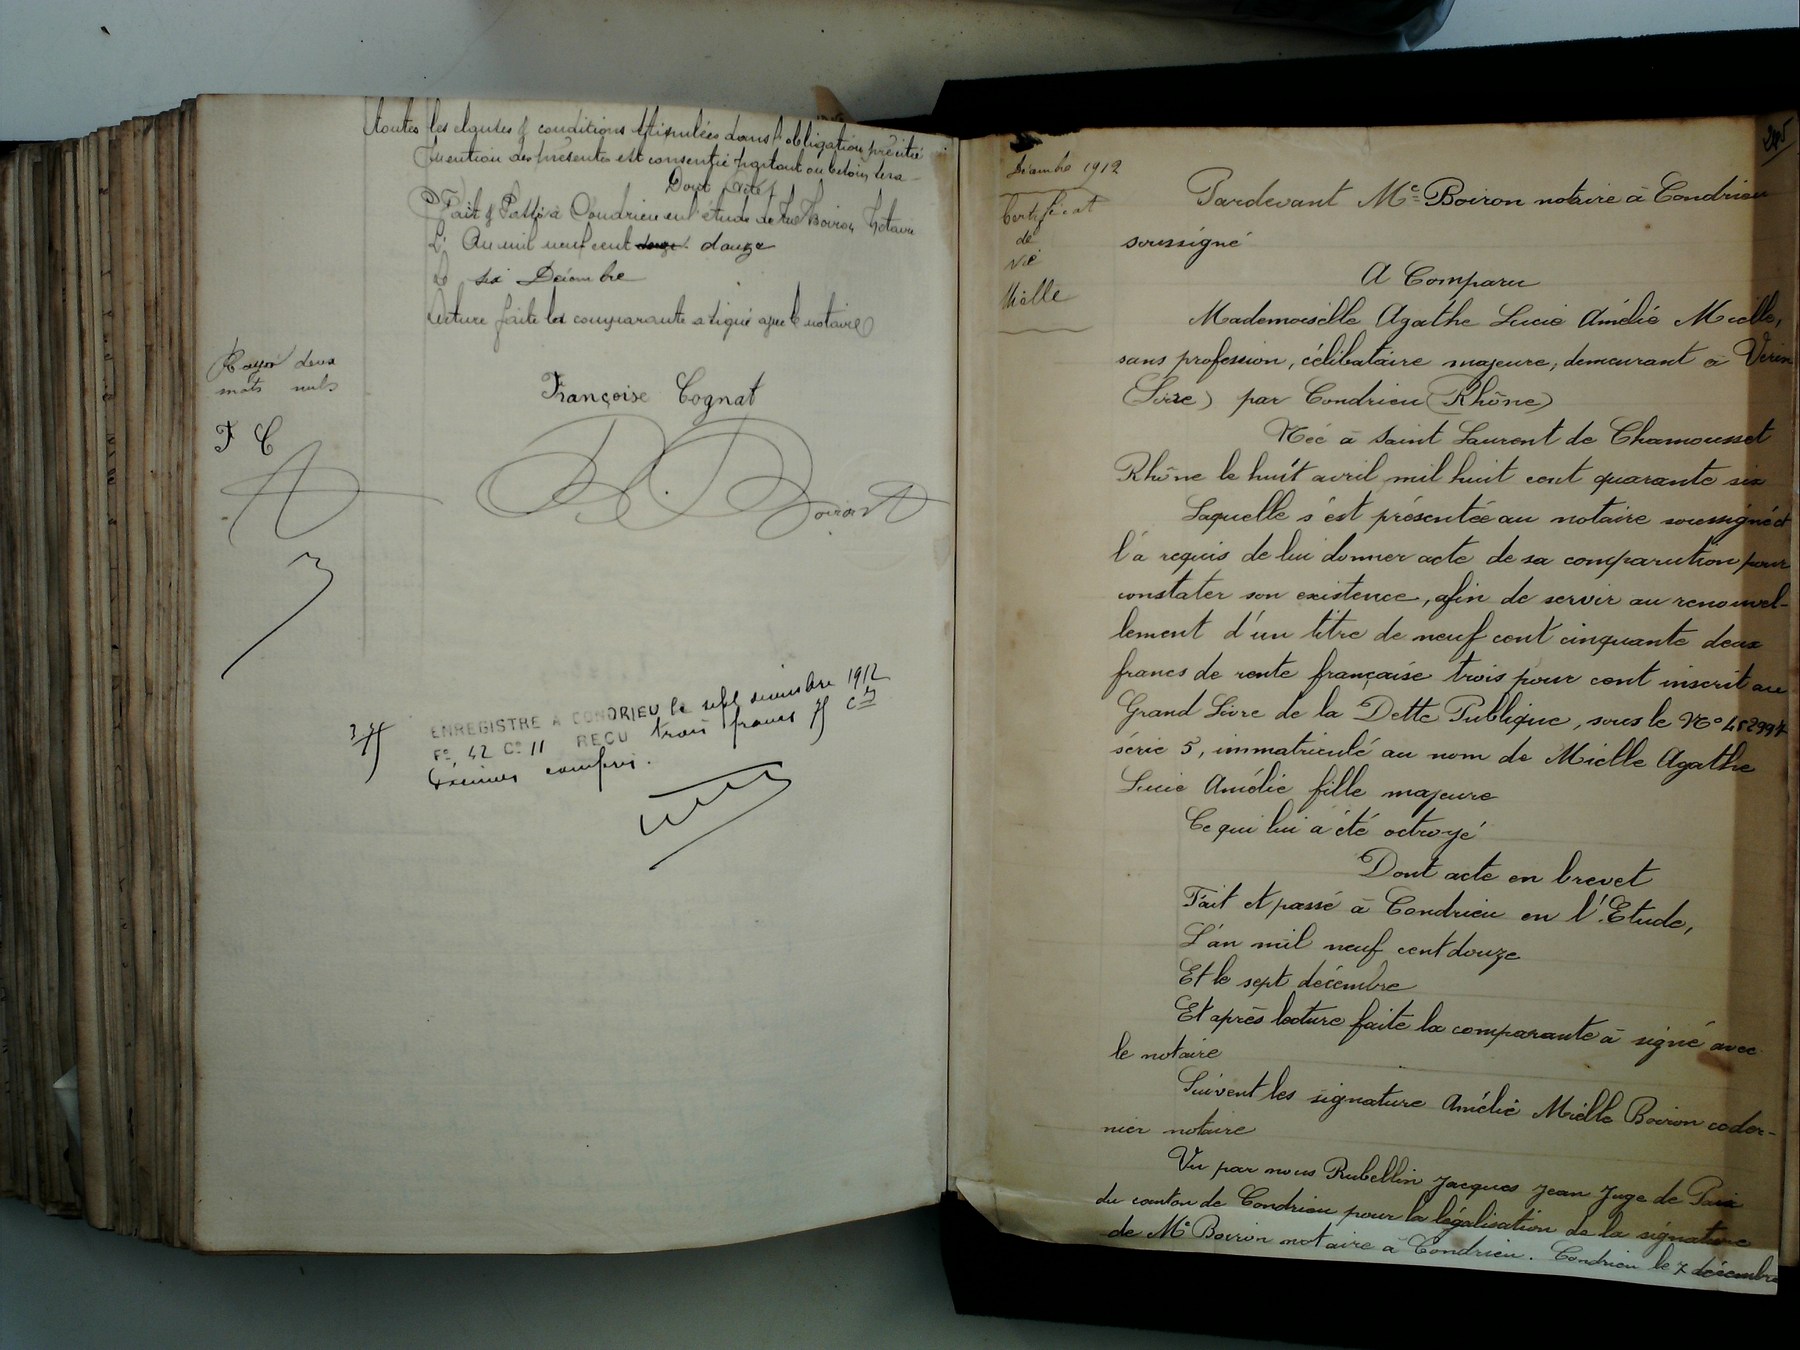 toutes les clauses & conditions stipulées dans l'obligation précitée
mention des présentes est consentie partout où besoin sera
Dont acte
Fait & Passé à Condrieu en l'étude de Me Boiron Notaire
L'An mil neuf cent douze
Le six Décembre
Lecture faite la comparante a signé avec le notaire
Rayé deux
mots nuls
F C
Françoise Cognat
Boiron
3,75
ENREGISTRE A CONDRIEU le sept décembre 1912
Fo 42 Co 11 REÇU trois francs 75 cs
Décimes compris.
245
Décembre 1912
Certificat
de
vie
Mielle
Pardevant Me Boiron notaire à Condrieu
soussigné
A Comparu
Mademoiselle Agathe Lucie Amélie Mielle,
sans profession, célibataire majeure, demeurant à Vérin
(Loire) par Condrieu (Rhône)
Née à Saint Laurent de Chamousset
Rhône le huit avril mil huit cent quarante six
Laquelle s'est présentée au notaire soussigné et
l'a requis de lui donner acte de sa comparution pour
constater son existence, afin de servir au renouvel-
lement d'un titre de neuf cent cinquante deux
francs de rente française trois pour cent inscrit au
Grand Livre de la Dette Publique, sous le No
série 5, immatriculé au nom de Mielle Agathe
Lucie Amélie fille majeure
Ce qui lui a été octroyé
Dont acte en brevet
Fait et passé à Condrieu en l'Etude,
L'an mil neuf cent douze
Et le sept décembre
Et après lecture faite la comparante à signé avec
le notaire
Suivent les signature Amélie Mielle Boiron ce der-
nier notaire
Vu par nous Rubellin Jacques Jean Juge de Paix
du canton de Condrieu pour la légalisation de la signature
de Me Boiron notaire à Condrieu. Condrieu le 7 décembre